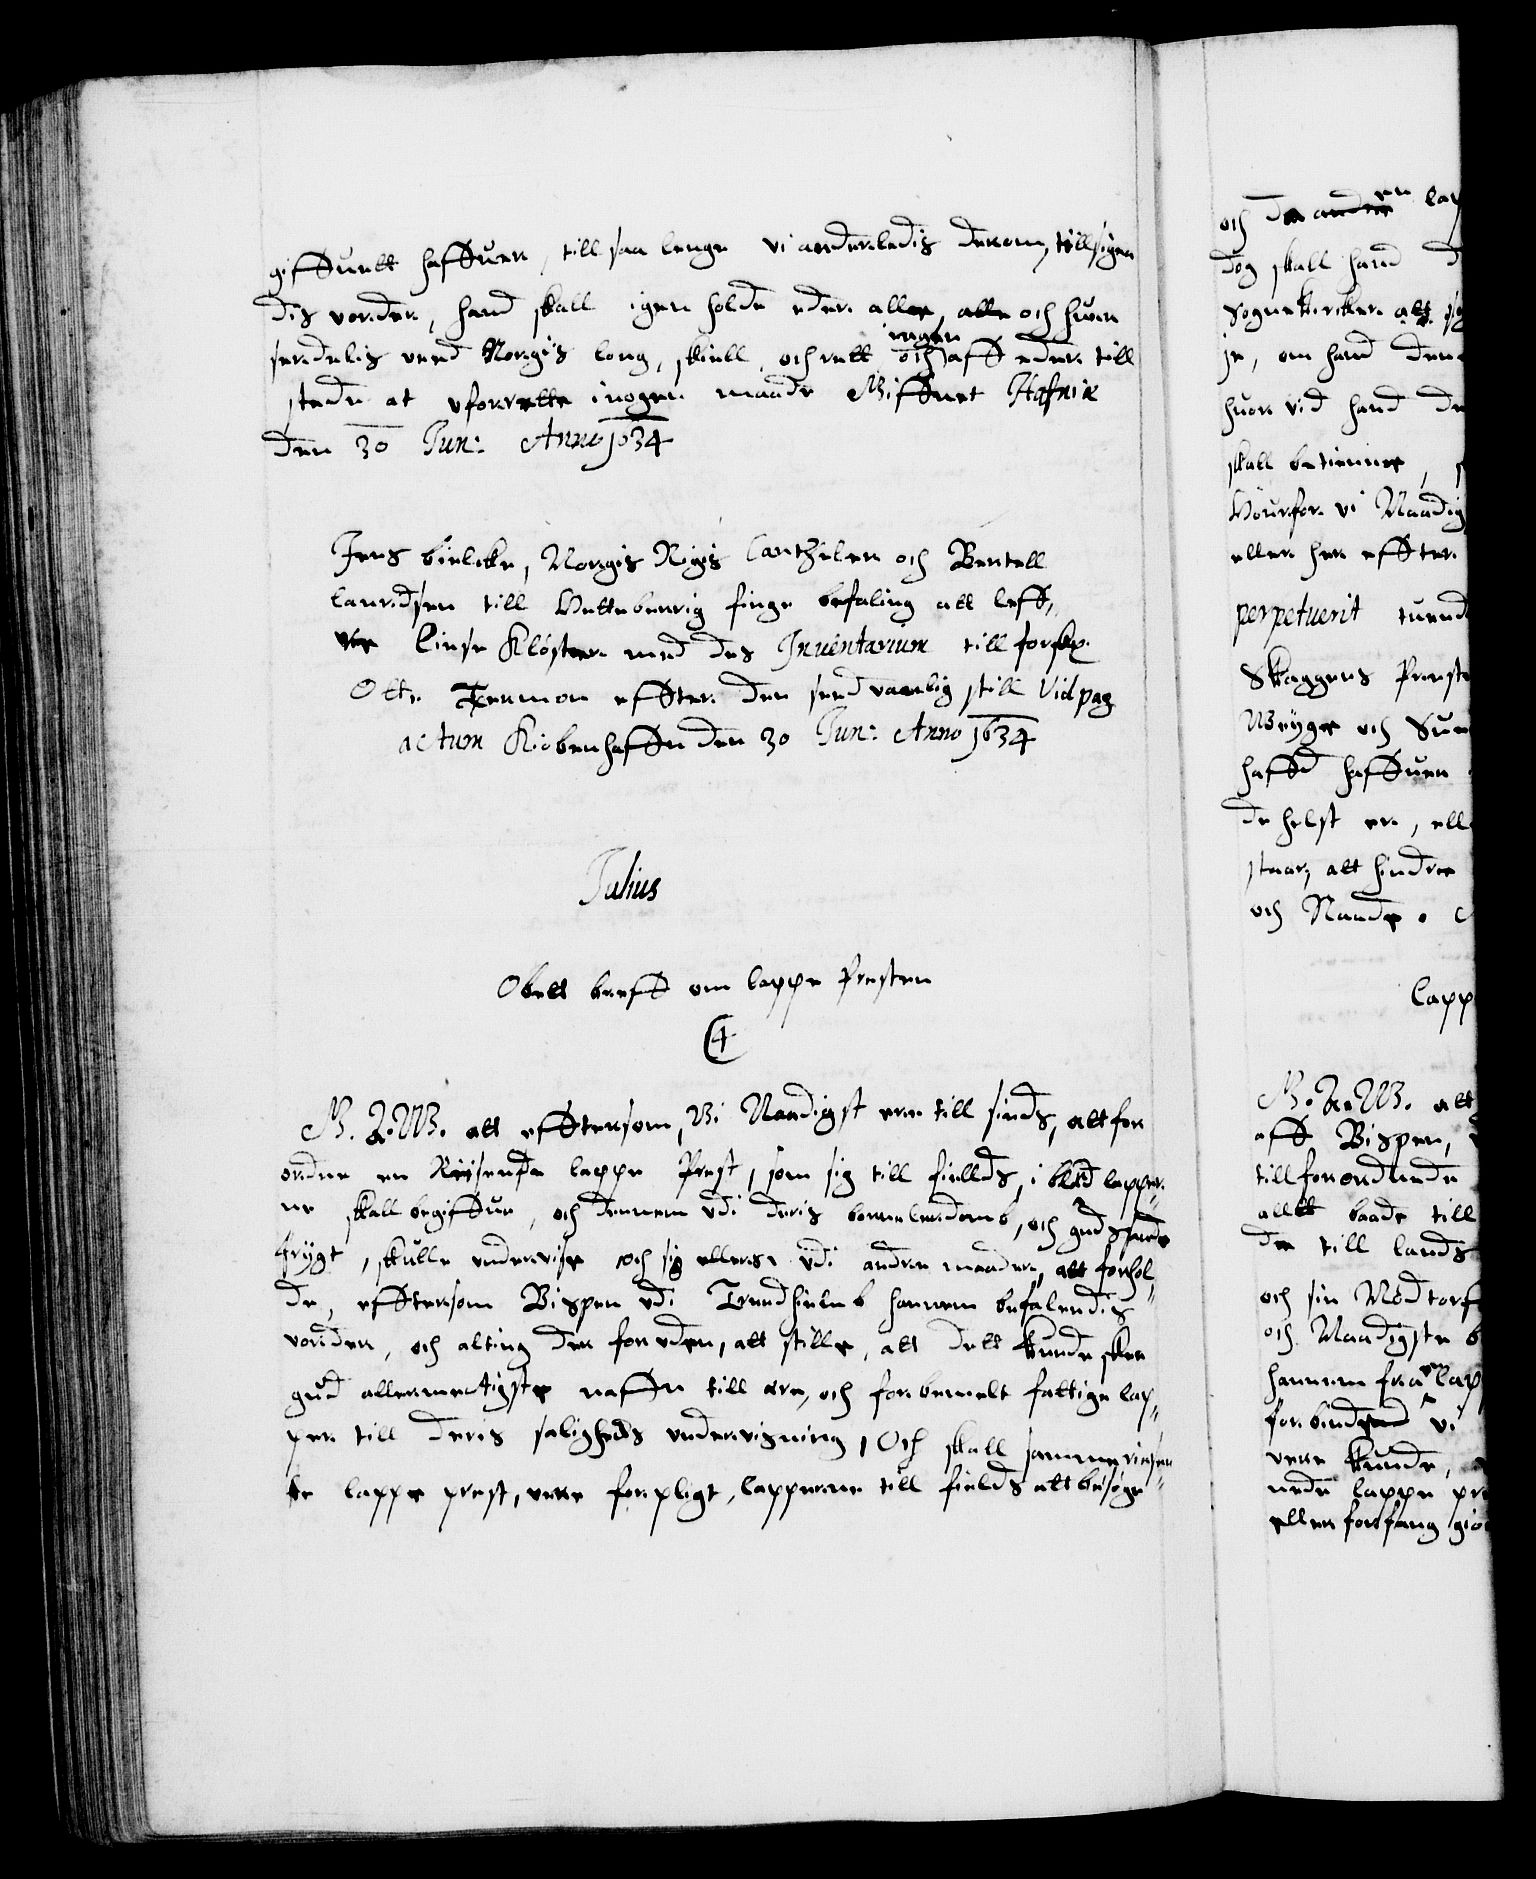 giffuett haffuer, till saa lenge vi anderledis derom, tilsigen
dis vorder, hand skall igen holde eder alle, alle och huer
serdelis ved Norgis loug, skiell, och rett och ingen aff eder till
stede at vforrette i nogen maade Giffuet Hafniæ
den 30 Jun: Anno 1634
Jens bielcke, Norgis Rigis Cantzeler och Bertell
lauridsen till finge befaling att leff,
Closter med des Inuentarium till forskr.
Otte effter den sedvanlig still Vid pag
actum Kiøbenhaffn den 30 Jun: Anno 1634
Julius
Obett breff om lappe Presten
C4
G. A. W. att efftersom, Vi Naadigst ere till sinds, att for
ordne en Reisende lappe Prest, som sig till fields, i bland lapper
ne skall begiffue, och dennem vdi deris børnelerdomb, och guds sande
frygt, skulle vnderuise och sig ellers vdi andre maader, att forhol,
de, efftersom Bispen vdi Trundhiemb hannem befalendis
vorder, och alting der foruden, att stille, att dett kunde skee
gud allermectigste naffn till ære, och forbemelt fattige lap,,
per till deris saligheds vnderuisning, Och skall samme reisen
de lappe prest, vere forpligt, lapperne till fields att besøge
och de andre en lap
dog skall hand d
Sognekircker att
je, om hand den
huor vid hand de
skall betienne,
Huorfor vi Naadig
eller her effter
perpetuerit tuend
Skaggens Prest
och Sue
hafft haffuer
de helst er, ell
staar, att hindre
och Naade.
Lapp
G. A. W. att
aff Bispen,
till forordnede
allt baade till
de till lands
och sin Nødtorf
och Naadigste b
hannem fra lap
forbindend vi
vere kunde,
nede lappe pre
eller forfang giø